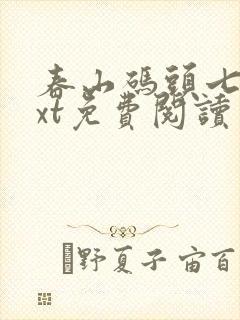 春山碼頭七
xt免費閱讀
野夏子宙百